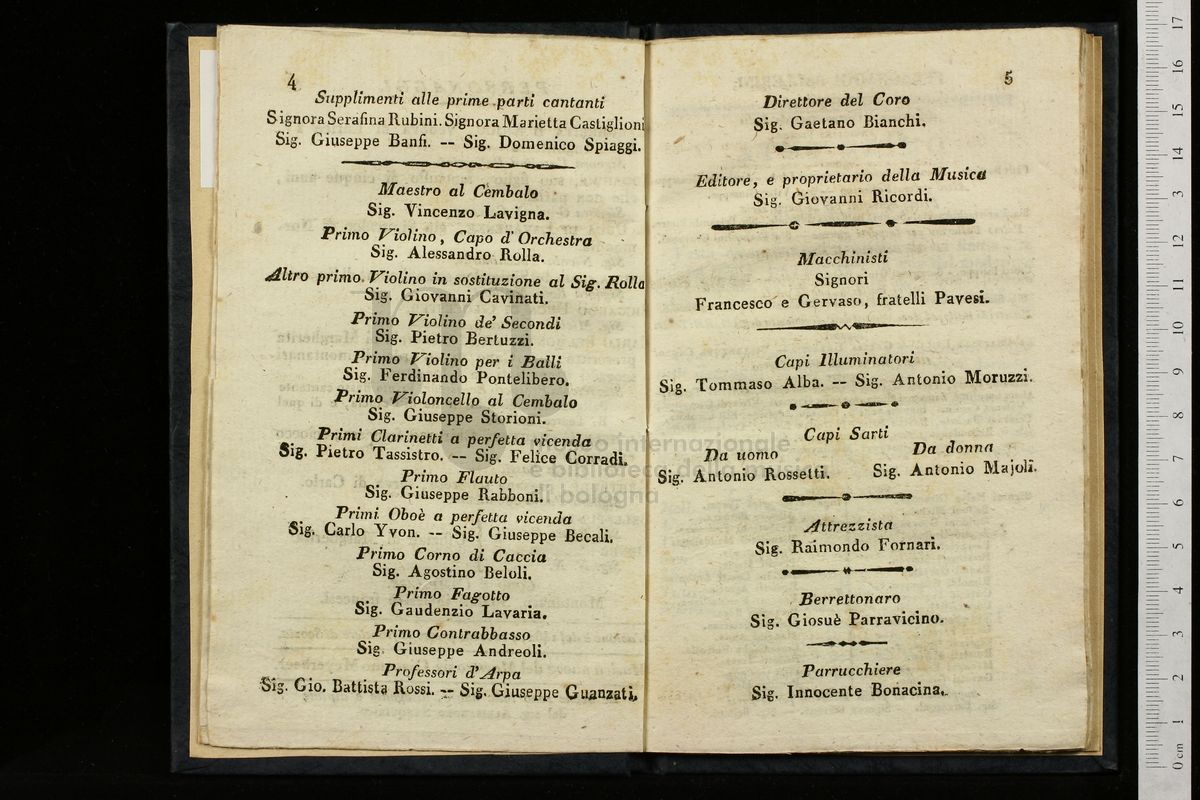 4
Supplimenti alle prime parti cantanti
Signora Serafina Rubini. Signora Marietta Castiglioni
Sig. Giuseppe Banfi. -- Sig. Domenico Spiaggi.
Maestro al Cembalo
Sig. Vincenzo Lavigna.
Primo Violino, Capo d'Orchestra
Sig. Alessandro Rolla.
Altro primo Violino in sostituzione al Sig. Rolla
Sig. Giovanni Cavinati.
Primo Violino de' Secondi
Sig. Pietro Bertuzzi.
Primo Violino per i Balli
Sig. Ferdinando Pontelibero.
Primo Violoncello al Cembalo
Sig. Giuseppe Storioni.
Primi Clarinetti a perfetta vicenda
Sig. Pietro Tassistro. -- Sig. Felice Corradi.
Primo Flauto
Sig. Giuseppe Rabboni.
Primi Oboè a perfetta vicenda
Sig. Carlo Yvon. -- Sig. Giuseppe Becali.
Primo Corno di Caccia
Sig. Agostino Beloli.
Primo Fagotto
Sig. Gaudenzio Lavaria.
Primo Contrabbasso
Sig. Giuseppe Andreoli.
Professori d'Arpa
Sig. Gio. Battista Rossi. -- Sig. Giuseppe Guanzati.
5
Direttore del Coro
Sig. Gaetano Bianchi.
Editore, e proprietario della Musica
Sig. Giovanni Ricordi.
Macchinisti
Signori
Francesco e Gervaso, fratelli Pavesi.
Capi Illuminatori
Sig. Tommaso Alba. -- Sig. Antonio Moruzzi.
Capi Sarti
Da uomo Da donna
Sig. Antonio Rossetti. Sig. Antonio Majoli.
Attrezzista
Sig. Raimondo Fornari.
Berrettonaro
Sig. Giosuè Parravicino.
Parrucchiere
Sig. Innocente Bonacina.
internazionale
e biblioteca della musica
di bologna
0 cm 1 2 3 4 5 6 7 8 9 10 11 12 13 14 15 16 17